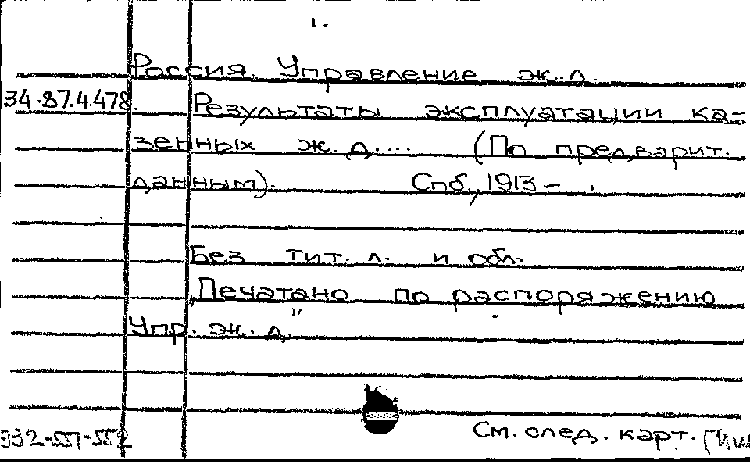 1.
Россия. Управление ж.д.
34.87.4.478 Результаты эксплуатации ка-
зенных ж.д.... (По предварит.
данным). Спб., 1913 - .
Без тит. л. и обл.
„Печатано по распоряжению
Упр. ж.д."
См. след. карт.